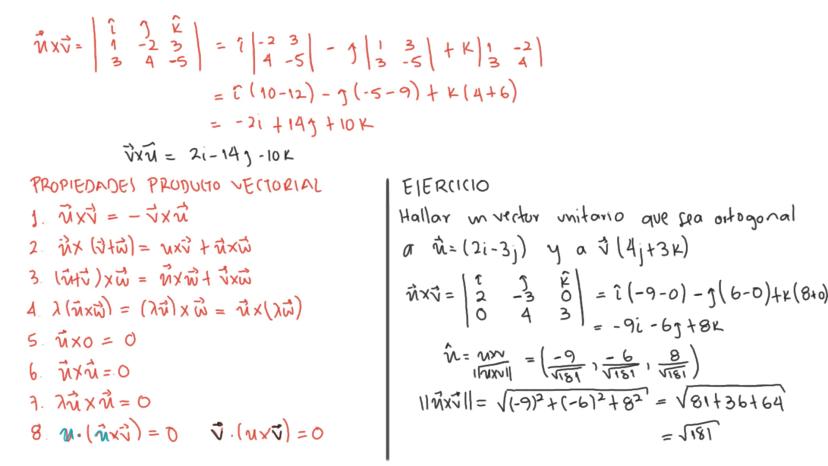 u⃗xv⃗ = | î ĵ k̂ | = î |-2 3| - ĵ |1 3| + k |1 -2|
| 1 -2 3 | |4 -5| |3 -5| |3 4|
| 3 4 -5 |
= î (10-12) - ĵ(-5-9) + k(4+6)
= -2i + 14j + 10k
v⃗xu⃗ = 2i-14j-10k
PROPIEDADES PRODUCTO VECTORIAL
1. u⃗xv⃗ = - v⃗xu⃗
2. u⃗x (v⃗+w⃗) = uxv⃗ + u⃗xw⃗
3. (u⃗+v⃗)xw⃗ = u⃗xw⃗ + v⃗xw⃗
4. λ(u⃗xw⃗) = (λu⃗)xw⃗ = u⃗x(λw⃗)
5. u⃗x0 = 0
6. u⃗xu⃗ = 0
7. λu⃗xu⃗ = 0
8. u·(u⃗xv⃗) = 0 v⃗·(uxv⃗) = 0
EJERCICIO
Hallar un vector unitario que sea ortogonal
a u⃗=(2i-3j) y a v⃗(4j+3k)
u⃗xv⃗ = | î ĵ k̂ | = î(-9-0) - ĵ(6-0)+k(8+0)
| 2 -3 0 |
| 0 4 3 | = -9i-6j+8k
û = uxv/||uxv|| = (-9/√181, -6/√181, 8/√181)
||u⃗xv⃗|| = √(-9)²+(-6)²+8² = √81+36+64
= √181